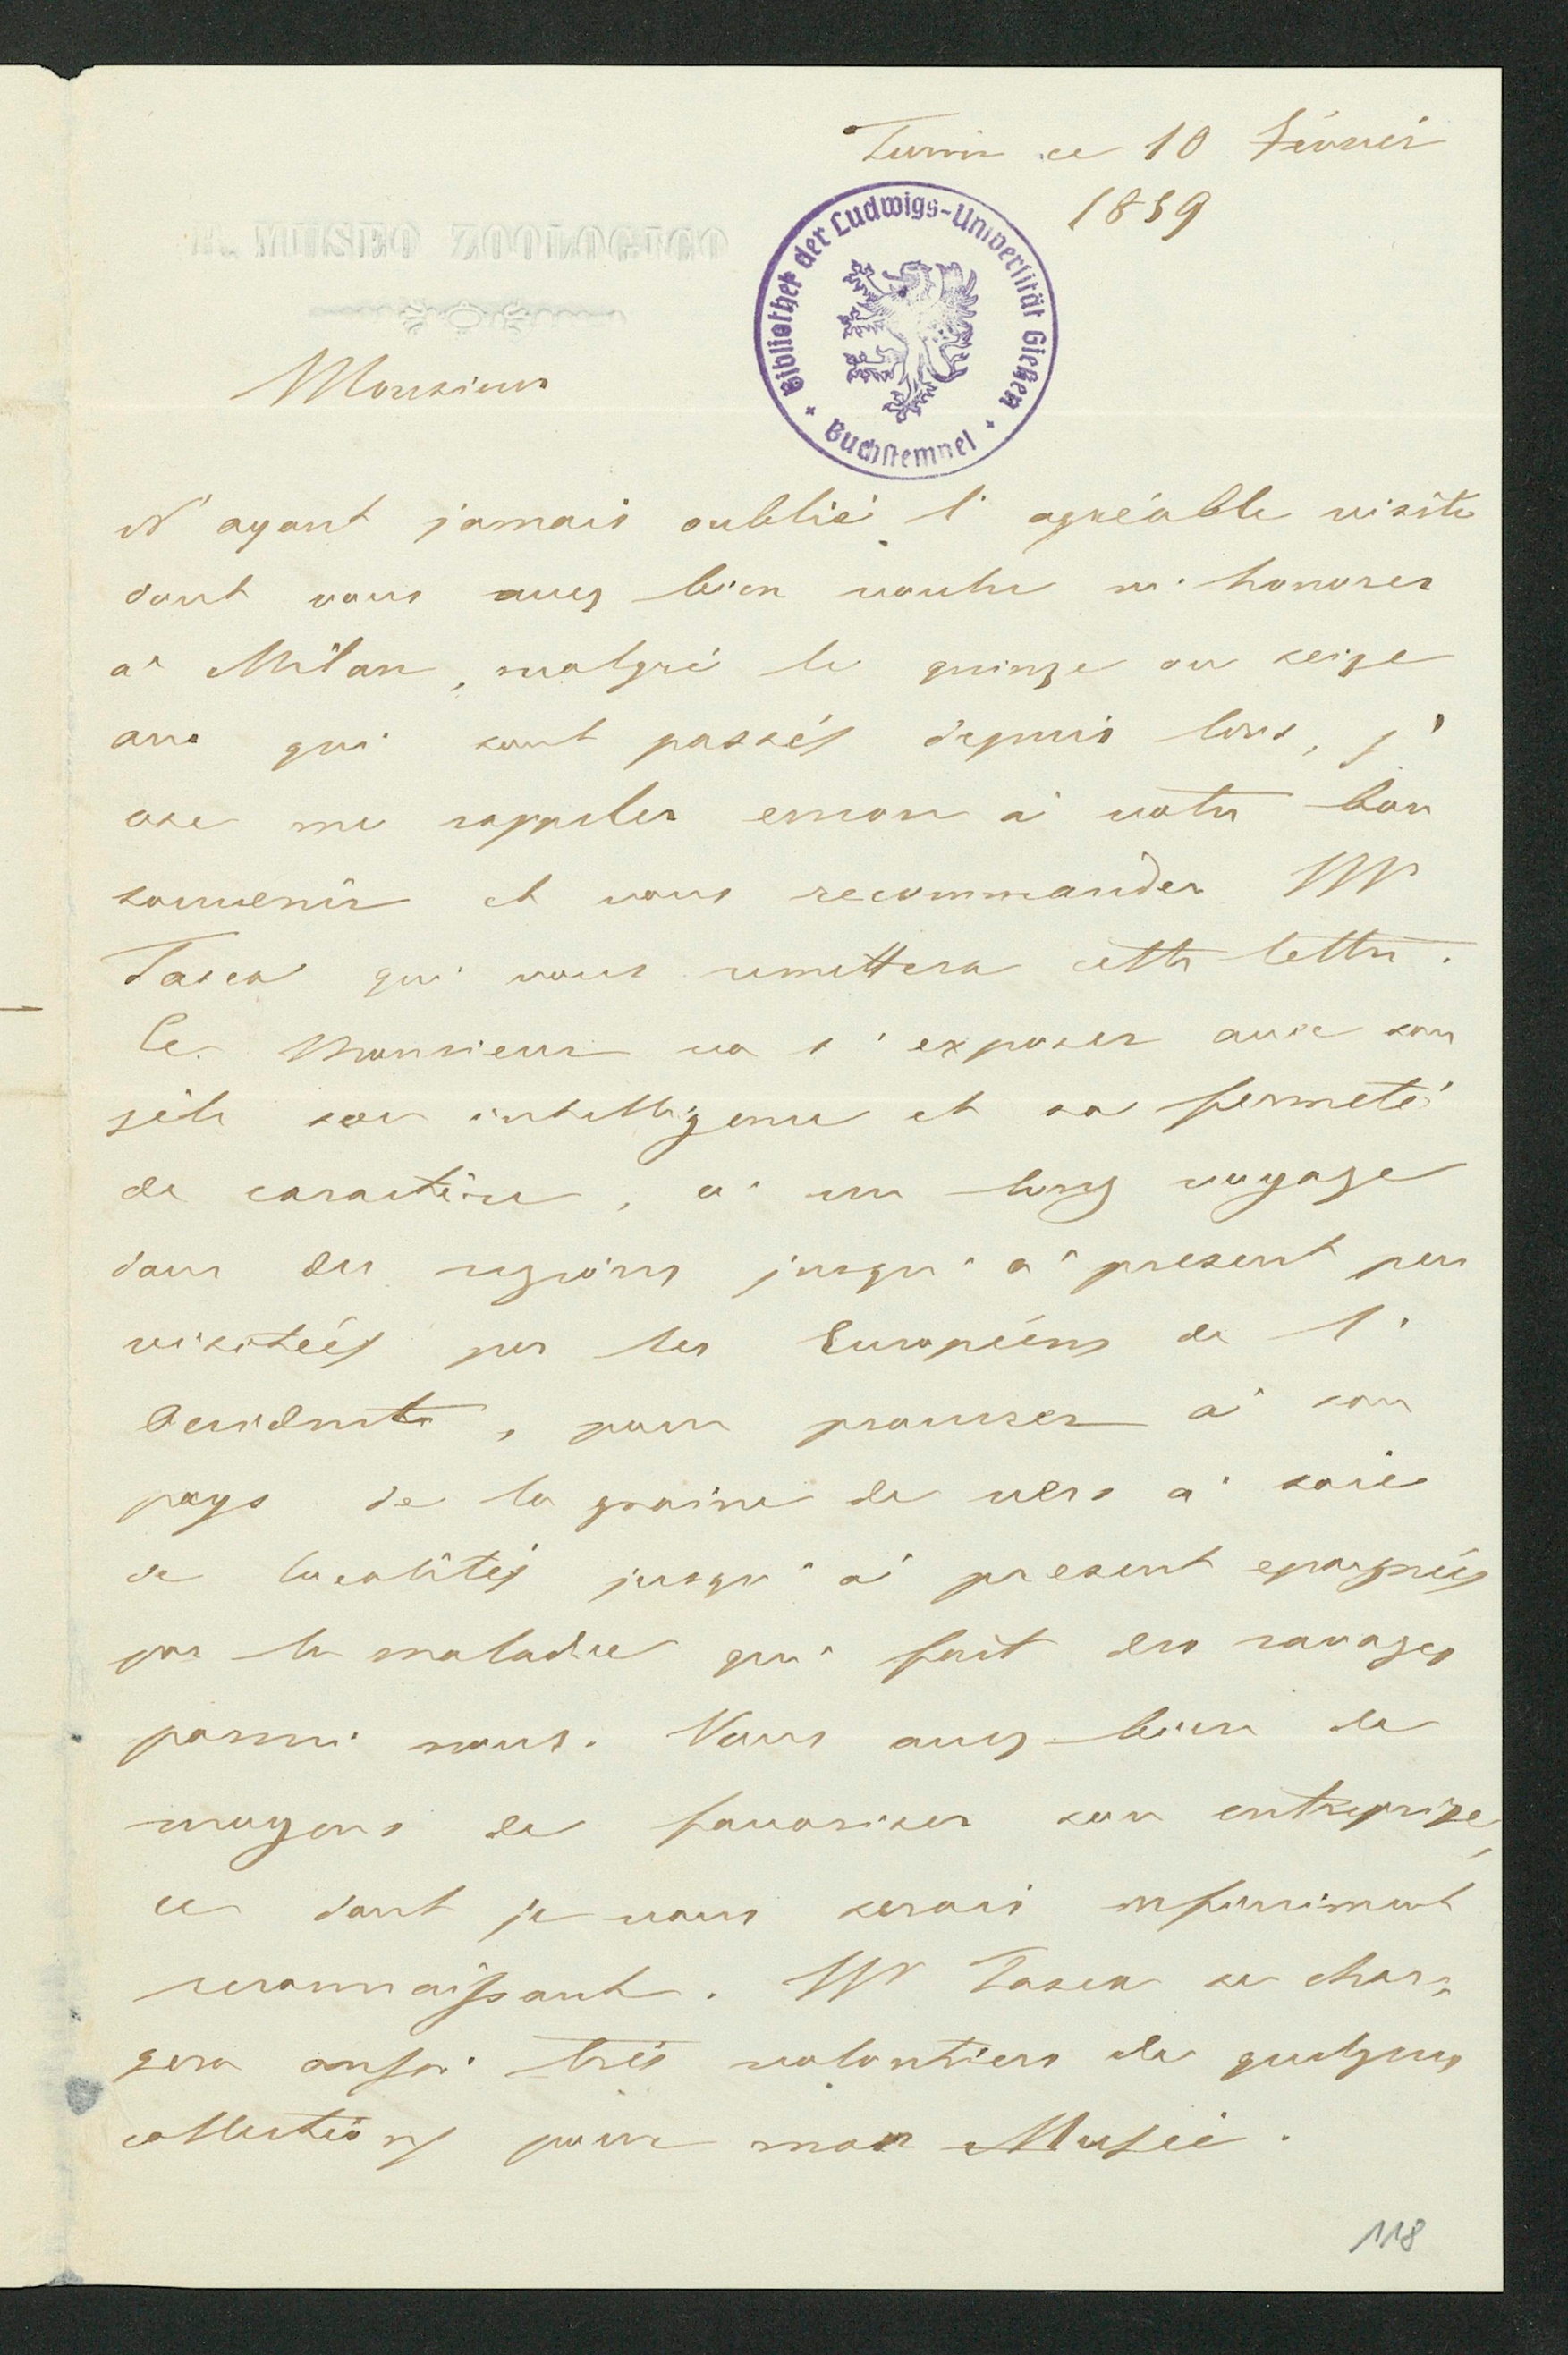 Turin ce 10 Février
1859
R. MUSEO ZOOLOGICO
Bibliothek der Ludwigs-Universität Gießen
Buchstempel
Monsieur
N'ayant jamais oublié l'agréable visite
dont vous avez bien voulu m'honorer
à Milan, malgré le quinze ou seize
ans qui sont passés depuis lors, j'
ose me rappeler encore à votre bon
souvenir et vous recommander Mr
Tasca qui vous remettera cette lettre.
Ce Monsieur va s'exposer avec son
zèle son intelligence et sa fermeté
de caractère, à un long voyage
dans des regions jusqu'à present peu
visitées par les Européens de l'
Occidente, pour procurer à son
pays de la graine de vers à soie
de localités jusqu'à present epargnées
par la maladie qui fait des ravages
parmi nous. Vous avez bien de
moyens de favoriser son entreprize,
ce dont je vous serais infiniment
reconnaissant. Mr Tasca se char=
gera aussi très volontiers de quelques
collections pour mon Musée.
118